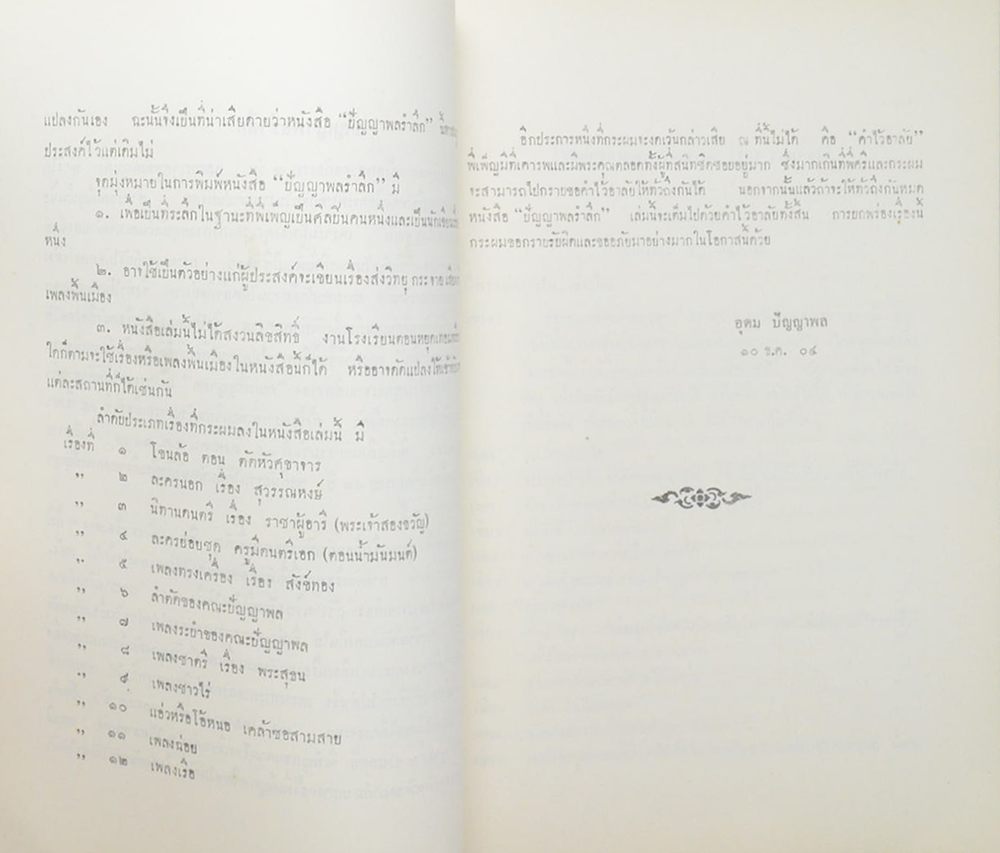 แปลงกันเอง ฉะนั้นจึงเป็นที่น่าเสียดายว่าหนังสือ “ปัญญาพลรำลึก”
ประสงค์ไว้แต่เดิมไม่
จุดมุ่งหมายในการพิมพ์หนังสือ “ปัญญาพลรำลึก” มี
๑. เพื่อเป็นที่ระลึกในฐานะที่พี่เพ็ญเป็นศิลปินคนหนึ่งและเป็นนักเขียน
หนึ่ง
๒. อาจใช้เป็นตัวอย่างแก่ผู้ประสงค์จะเขียนเรื่องส่งวิทยุกระจายเสียง
เพลงพื้นเมือง
๓. หนังสือเล่มนี้ไม่ได้สงวนลิขสิทธิ์ งานโรงเรียนตอนหยุดเทอม
ใดก็ตามจะใช้เรื่องหรือเพลงพื้นเมืองในหนังสือนี้ก็ได้ หรืออาจดัดแปลงให้เข้ากับ
แต่ละสถานที่ก็ได้เช่นกัน
ลำดับประเภทเรื่องที่กระผมลงในหนังสือเล่มนี้ มี
เรื่องที่ ๑ โขนล้อ ตอน ตัดหัวศุขาจาร
” ๒ ละครนอก เรื่อง สุวรรณหงษ์
” ๓ นิทานดนตรี เรื่อง ราชาผู้อารี (พระเจ้าสองขวัญ)
” ๔ ละครย่อยชุด ครูมีดนตรีเอก (ตอนน้ำมันมนต์)
” ๕ เพลงทรงเครื่อง เรื่อง สังข์ทอง
” ๖ ลำตัดของคณะปัญญาพล
” ๗ เพลงระบำของคณะปัญญาพล
” ๘ เพลงชาตรี เรื่อง พระสุธน
” ๙ เพลงชาวไร่
” ๑๐ แอ่วหรือโอ้หนอ เคล้าซอสามสาย
” ๑๑ เพลงฉ่อย
” ๑๒ เพลงเรือ
อีกประการหนึ่งที่กระผมจะงดเว้นกล่าวเสีย ณ ที่นี้ไม่ได้ คือ “คำไว้อาลัย”
พี่เพ็ญมีที่เคารพและมีพระคุณตลอดทั้งผู้ที่สนิทชิดชอบอยู่มาก ซึ่งมากเกินที่พี่ศรีและกระผม
จะสามารถไปกราบขอคำไว้อาลัยให้ทั่วถึงกันได้ นอกจากนั้นแล้วถ้าจะให้ทั่วถึงกันหมด
หนังสือ “ปัญญาพลรำลึก” เล่มนี้จะเต็มไปด้วยคำไว้อาลัยทั้งสิ้น การบกพร่องเรื่องนี้
กระผมขอกราบรับผิดและขออภัยมาอย่างมากในโอกาสนี้ด้วย
อุดม ปัญญาพล
๑๐ ธ.ค. ๐๔